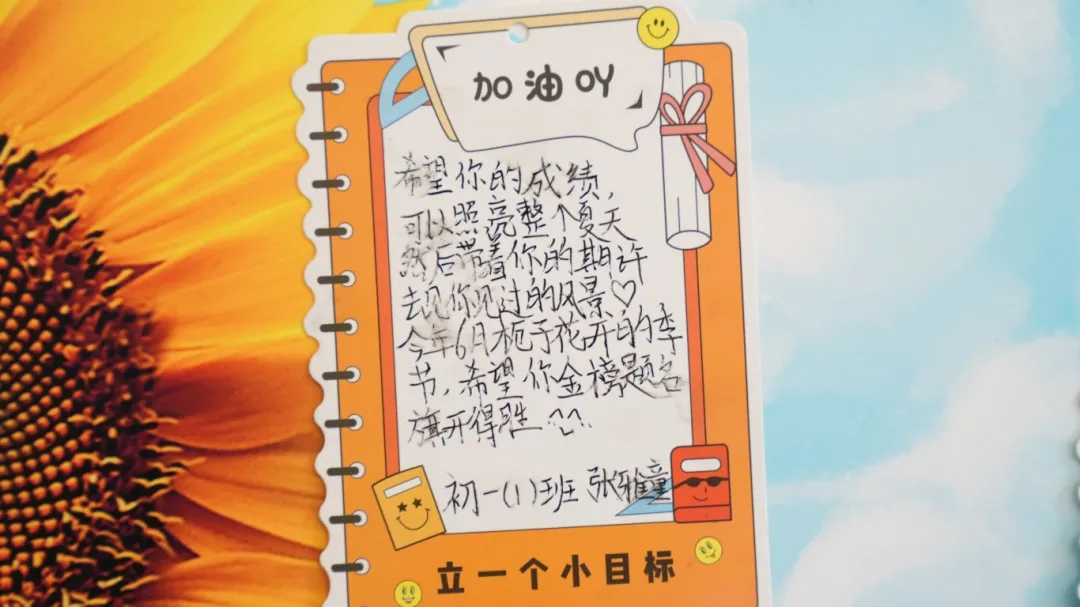 加油OY
希望你的成绩,
可以照亮整个夏天
然后带着你的期许
去见你见过的风景♡
今年6月栀子花开的季
节,希望你金榜题名
旗开得胜^^
初一(1)班 张雅童
立一个小目标